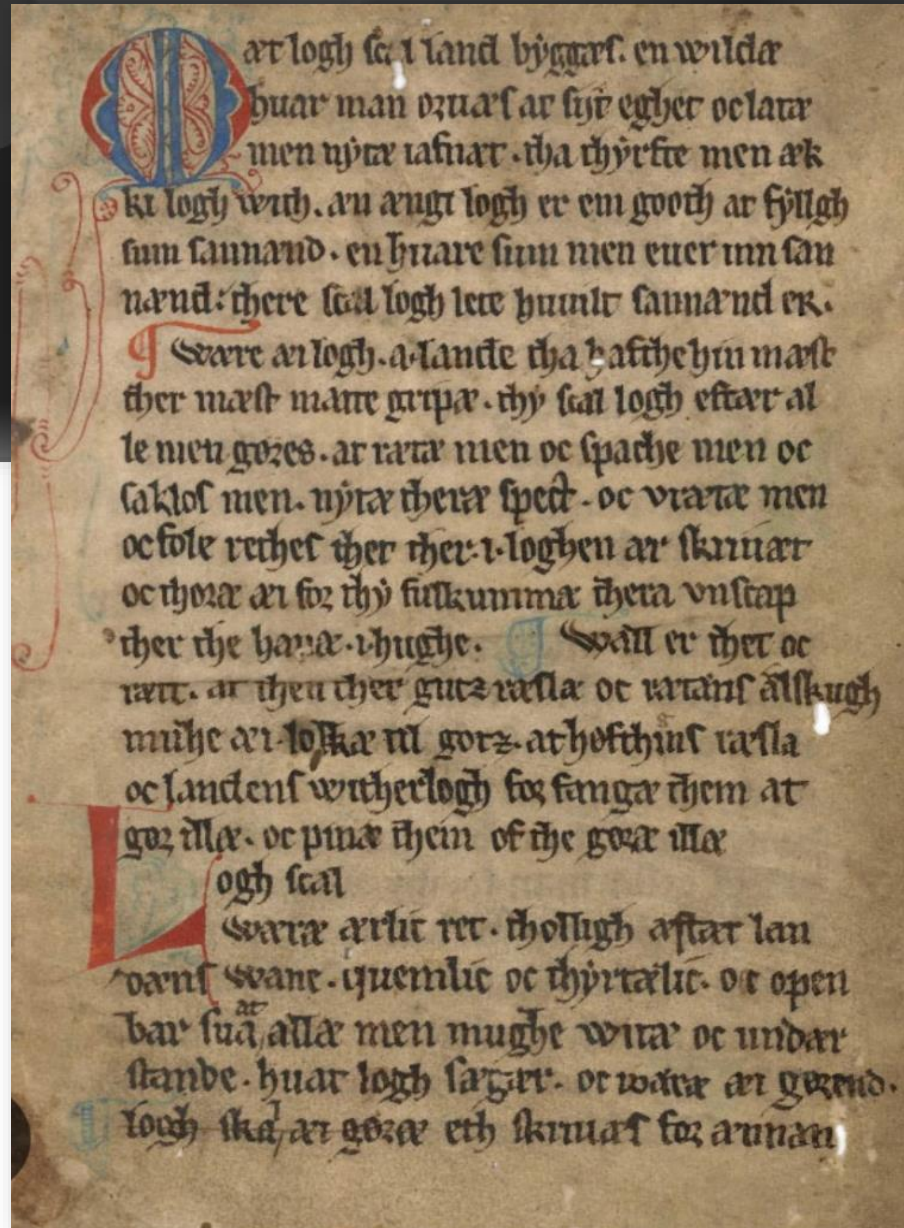 Mæt logh scal land byggæs. en wildæ
huar man oruæs at sit eghet oc latæ
men nytæ iafnæt. tha thyrfte men æk
ki logh with. æn ængi logh er em gooth at fyllgh
sum sannænd. en huare sum men euer um san
nænd: there scal logh lete huuilt sannænd er.
¶ Ware æi logh. a. lande tha hafthe hin mæst
ther mæst matte gripæ. thy scal logh eftær al
le men gøres. at rætæ men oc spache men oc
saklos men. nytæ theræ spect. oc vrætæ men
oc fole rethes ther ther. i. loghen ær skriuæt
oc thoræ æi for thy fulkummæ thera vnscap
ther the hauæ. i. hughe. ¶ Wall er thet oc
ræt. at then ther gutz ræslæ oc rætæns ælskugh
mughe æi. loskæ til gotz. at høfthins ræsla
oc landens witherlogh for fangæ them at
gør illæ. oc pinæ them of the gøræ illæ
Logh scal
wæræ ærlic ret. tholligh æftær lan
dæns wane. quemlic oc thyrtælic. oc open
bar sua at allæ men mughe witæ oc undær
stande. huat logh sæger. oc wæræ æi gørend.
logh skal æi gøræ eth skriuæs for annan